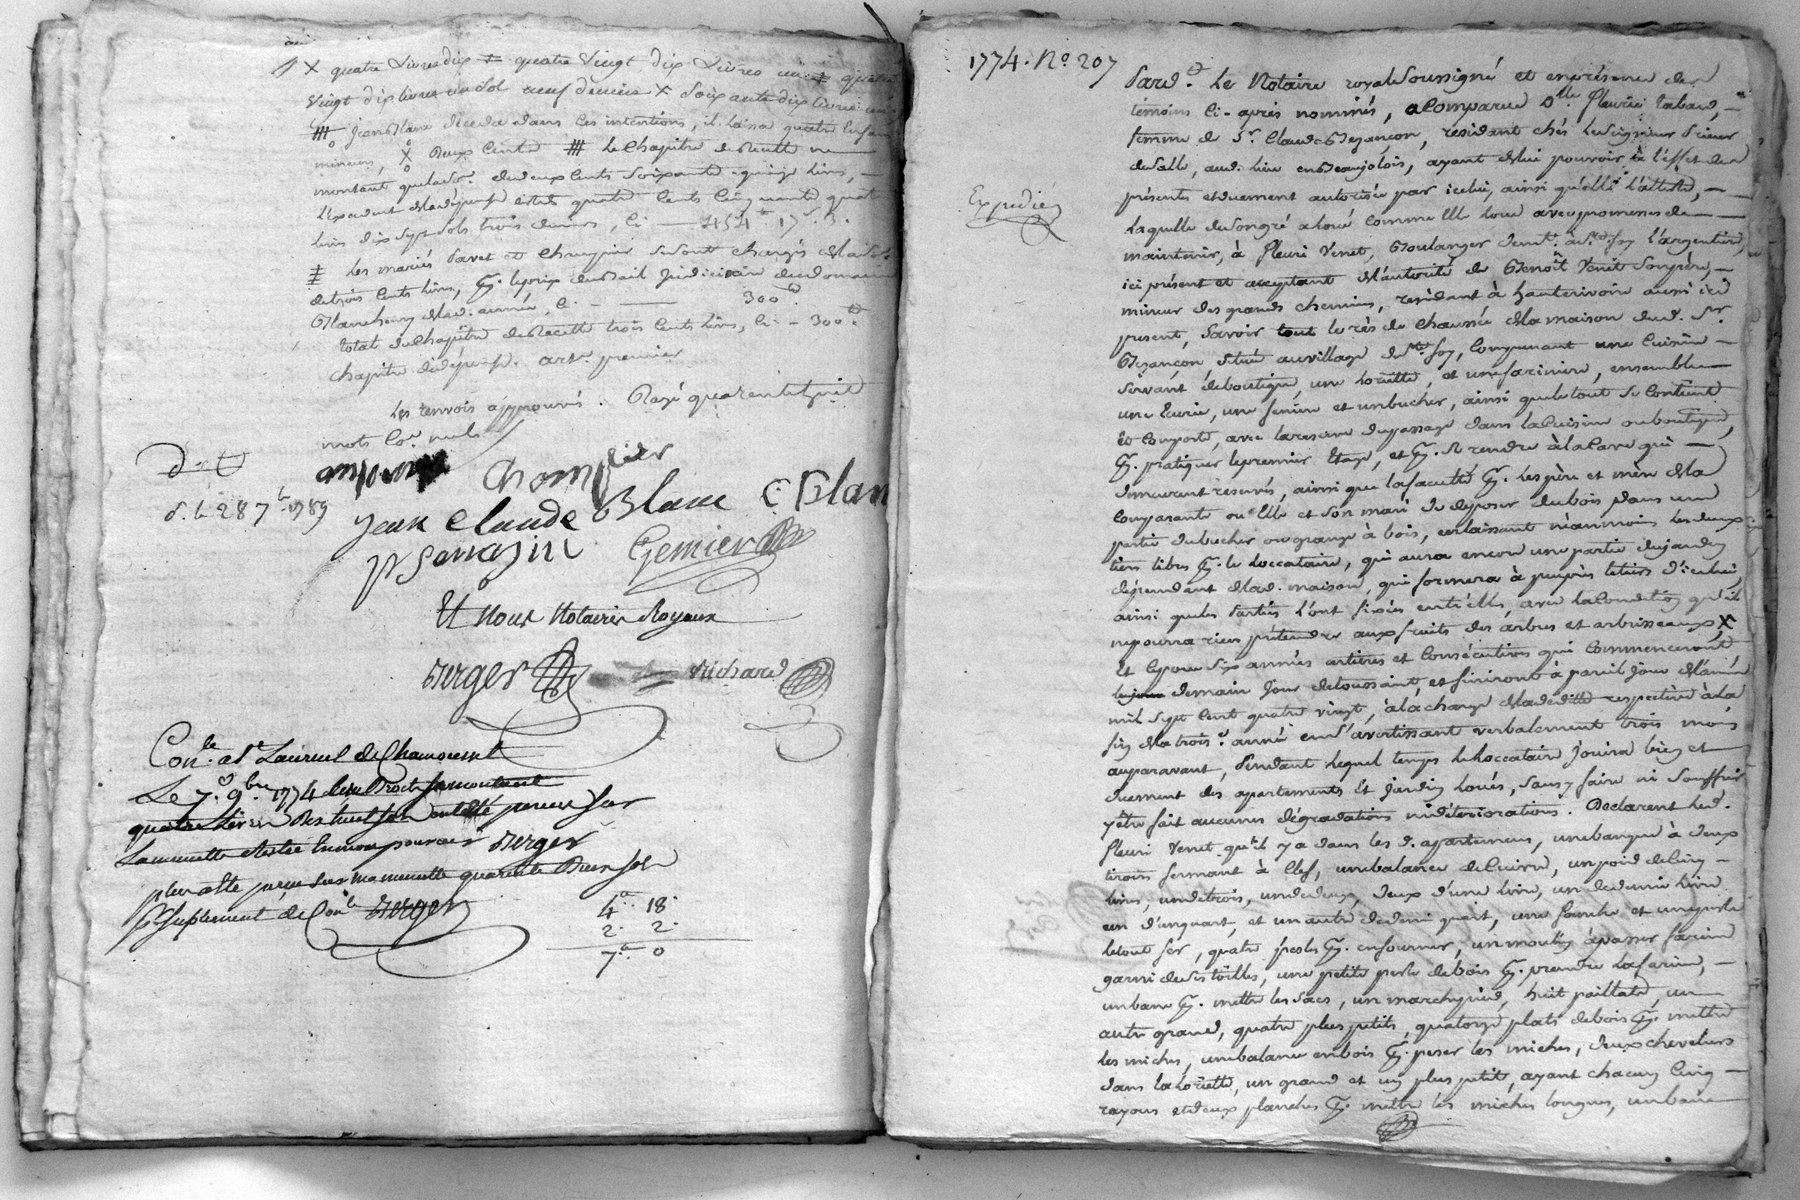 X quatre Livres dix ‡ quatre Vingt dix Livres un ‡ quatre
Vingt dix livres un Sol neuf deniers X Soixante dix livres
Jean Blanc décéda dans ces intentions, il laissa quatre Enfans
mineurs, X Deux Cents Le Chapitre de Recette ne
montant qu'à lad. de deux Cents Soixante quinze livres,
L'Excédent de la dépense est de quatre Cents Cinquante quatre
livres dix Sept sols trois deniers, Ci — 454 17 3.
‡ Les mariés Savet et Champier se sont chargés de la Solde
de trois Cents livres, pr. le prix du Bail judiciaire du domaine
année, Ci — 300
total du Chapitre de Recette trois Cents livres, Ci - 300
Chapitre de dépense. artr. premier
Les renvois approuvés. Rayé quarente huit
mots Co. nuls
D et
d. le 28 7 1789
Champier
Jean Claude Blanc C Blan
Gemier
Et Nous Notaires Royaux
Berger Richard
Con.le a St Laurent de Chamousset
Le 7. 9bre 1774 les Droits Se montant
quatre Livres Dix huit sols ont été perçus Sur
La minutte restée en mon pouvoir Berger
plus a été perçu sur ma minutte quarente Deux sols
pr Suplement de Con.le Berger
4 18
2. 2.
7 0
1774. No. 207
Expédié
Pard. Le Notaire royal Soussigné et en présence des
témoins Ci-après nommés, a Comparu Dlle. fleurie
femme de Sr. Claude Bezançon, résidant chés Le Seigneur Prieur
de Salle, aud. lieu en Beaujolois, ayant de lui pouvoir à l'éffet des
présentes et duement autorisée par icelui, ainsi qu'elle l'atteste,
Laquelle de Son gré a loué comme Elle loue avec promesses de
maintenir, à fleuri Venet, Boulanger demt. à Ste foy l'argentiere,
ici présent et acceptant de l'autorité de Benoit Venet Son père,
mineur des grands chemins, résidant à hauterivoire aussi ici
présent, Savoir tout le rés de Chaussée de la maison dud. Sr.
Bezançon, Située au village de Ste. foy, comprenant une Cuisine
Servant de boutique, une Loriette, et une farinière, ensemble
une Ecurie, une feniere et un bucher, ainsi que le tout Se Contient
Et Comporte, avec la reserve du passage dans la Cuisine ou boutique,
pr. pratiquer le premier Etage, et pr. Se rendre à la Cave qui
demeurent reservés, ainsi que la faculté pr. Les père et mère de la
Comparante ou Elle et Son mari de déposer du bois dans une
partie du bucher ou grange à bois, en laissant néanmoins les deux
tiers libres pr. le Loccataire, qui aura encore une partie du jardin
dépendant de lad. maison, qui formera à peu près le tiers d'icelui,
ainsi que les Parties l'ont fixées entr'elles, avec la Condition qu'il
ne poura rien prétendre aux fruits des arbres et arbrisseaux X
Et Ce pour Six années entières et Consécutives qui Commenceront
demain Jour de toussaint, et finiront à pareil jour de l'année
mil Sept Cent quatre vingt, à la charge de la dédite respective à la
fin de la trois.e année en S'avertissant verbalement trois mois
auparavant, Pendant lequel temps le Loccataire Jouira bien et
duement des apartements et jardin Loués, Sans y faire ni Souffrir
y être fait aucunes dégradations ni déteriorations. Déclarent led.
fleuri Venet qu'il y a dans les d. apartements, une banque à deux
tiroirs fermant à Clef, une balance de Cuivre, un poid de Cinq
livres, un de trois, un de deux, deux d'une livre, un de demie livre
un d'un quart, et un autre de demi quart, une fourche et une pele
le tout fer, quatre peles pr. enfourner, un moulin à passer farine
garni de Ses toilles, une petite pele de bois pr. prendre la farine,
un banc pr. mettre les Sacs, un marchepied, huit paillats, un
autre grand, quatre plus petits, quatorze plats de bois pr. mettre
les miches, une balance en bois pr. peser les miches, deux
dans la Loriette, un grand et un plus petit, ayant chacun Cinq
rayons et deux planches pr. mettre les miches longues, un banc